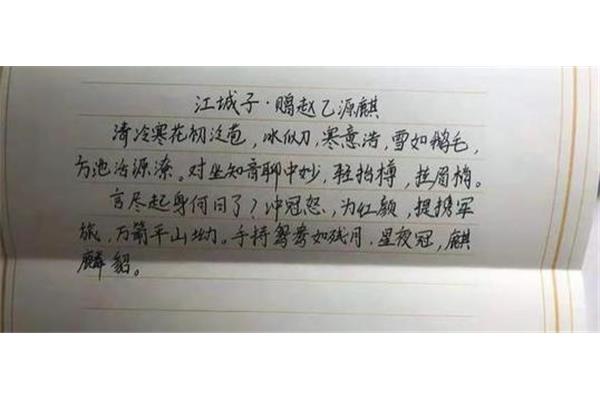 江城子·赠赵乙源麒
清冷寒花初泛苞，冰似刀，寒意浩，雪如鹅毛，
方池治源潦。对坐知音聊中妙，轻抬樽，拉眉梢。
言尽起身何日了？冲冠怒，为红颜，提携军
旅，万箭平山坳。手持鸳鸯如残月，星夜冠，麒
麟貂。